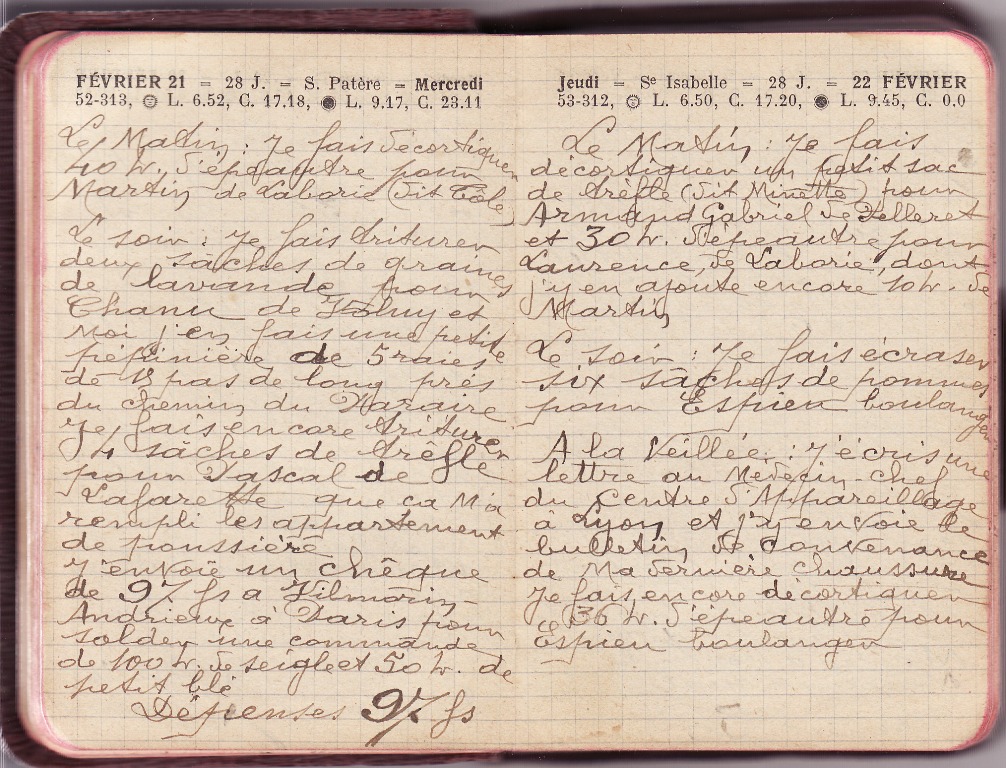 FÉVRIER 21 – 28 J. – S. Patère – Mercredi
52-313, L. 6.52, C. 17.18, L. 9.17, C. 23.11
Le Matin : Je fais décortiquer
40 k. d'épeautre pour
Martin de Laborie (dit Tôle)
Le soir : Je fais triturer
deux saches de graines
de lavande pour
Chanu de et
Moi j'en fais une petite
pépinière de 5 raies
de 13 pas de long près
du chemin du Paraire
Je fais encore triturer
4 saches de trêfle
pour Pascal de
Lafarette que ca M'a
rempli les appartement
de poussière
J'envoie un chêque
de 97 fs a Vilmorin
Andrieux à Paris pour
solder une commande
de 100 k. de seigle et 50 k. de
petit blé
Dépenses 97 fs
Jeudi – Se Isabelle – 28 J. – 22 FÉVRIER
53-312, L. 6.50, C. 17.20, L. 9.45, C. 0.0
Le Matin : Je fais
décortiquer un petit sac
de trêfle (dit Minette) pour
Armand Gabriel de Velleret
et 30 k. d'épeautre pour
Laurence, de Laborie, dont
j'y en ajoute encore 10 k. de
Martin
Le soir : Je fais écraser
six saches de pommes
pour Espieu boulanger
A la Veillée : J'écris une
lettre au Medecin-chef
du Centre d'Appareillage
à Lyon et j'y envoie le
bulletin de convenance
de Ma dernière chaussure
Je fais encore décortiquer
36 k. d'épeautre pour
Espieu boulanger